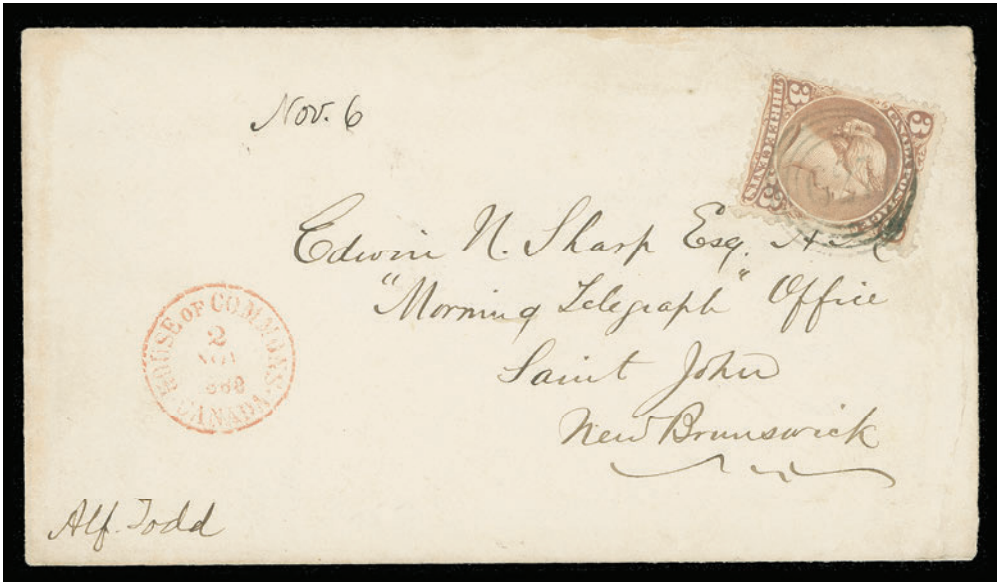 Nov. 6
3 3
CANADA POSTAGE
THREE CENTS
3
Edwin N. Sharp Esq.
"Morning Telegraph" Office
Saint John
New Brunswick
HOUSE OF COMMONS
2
NOV
CANADA
Alf. Todd